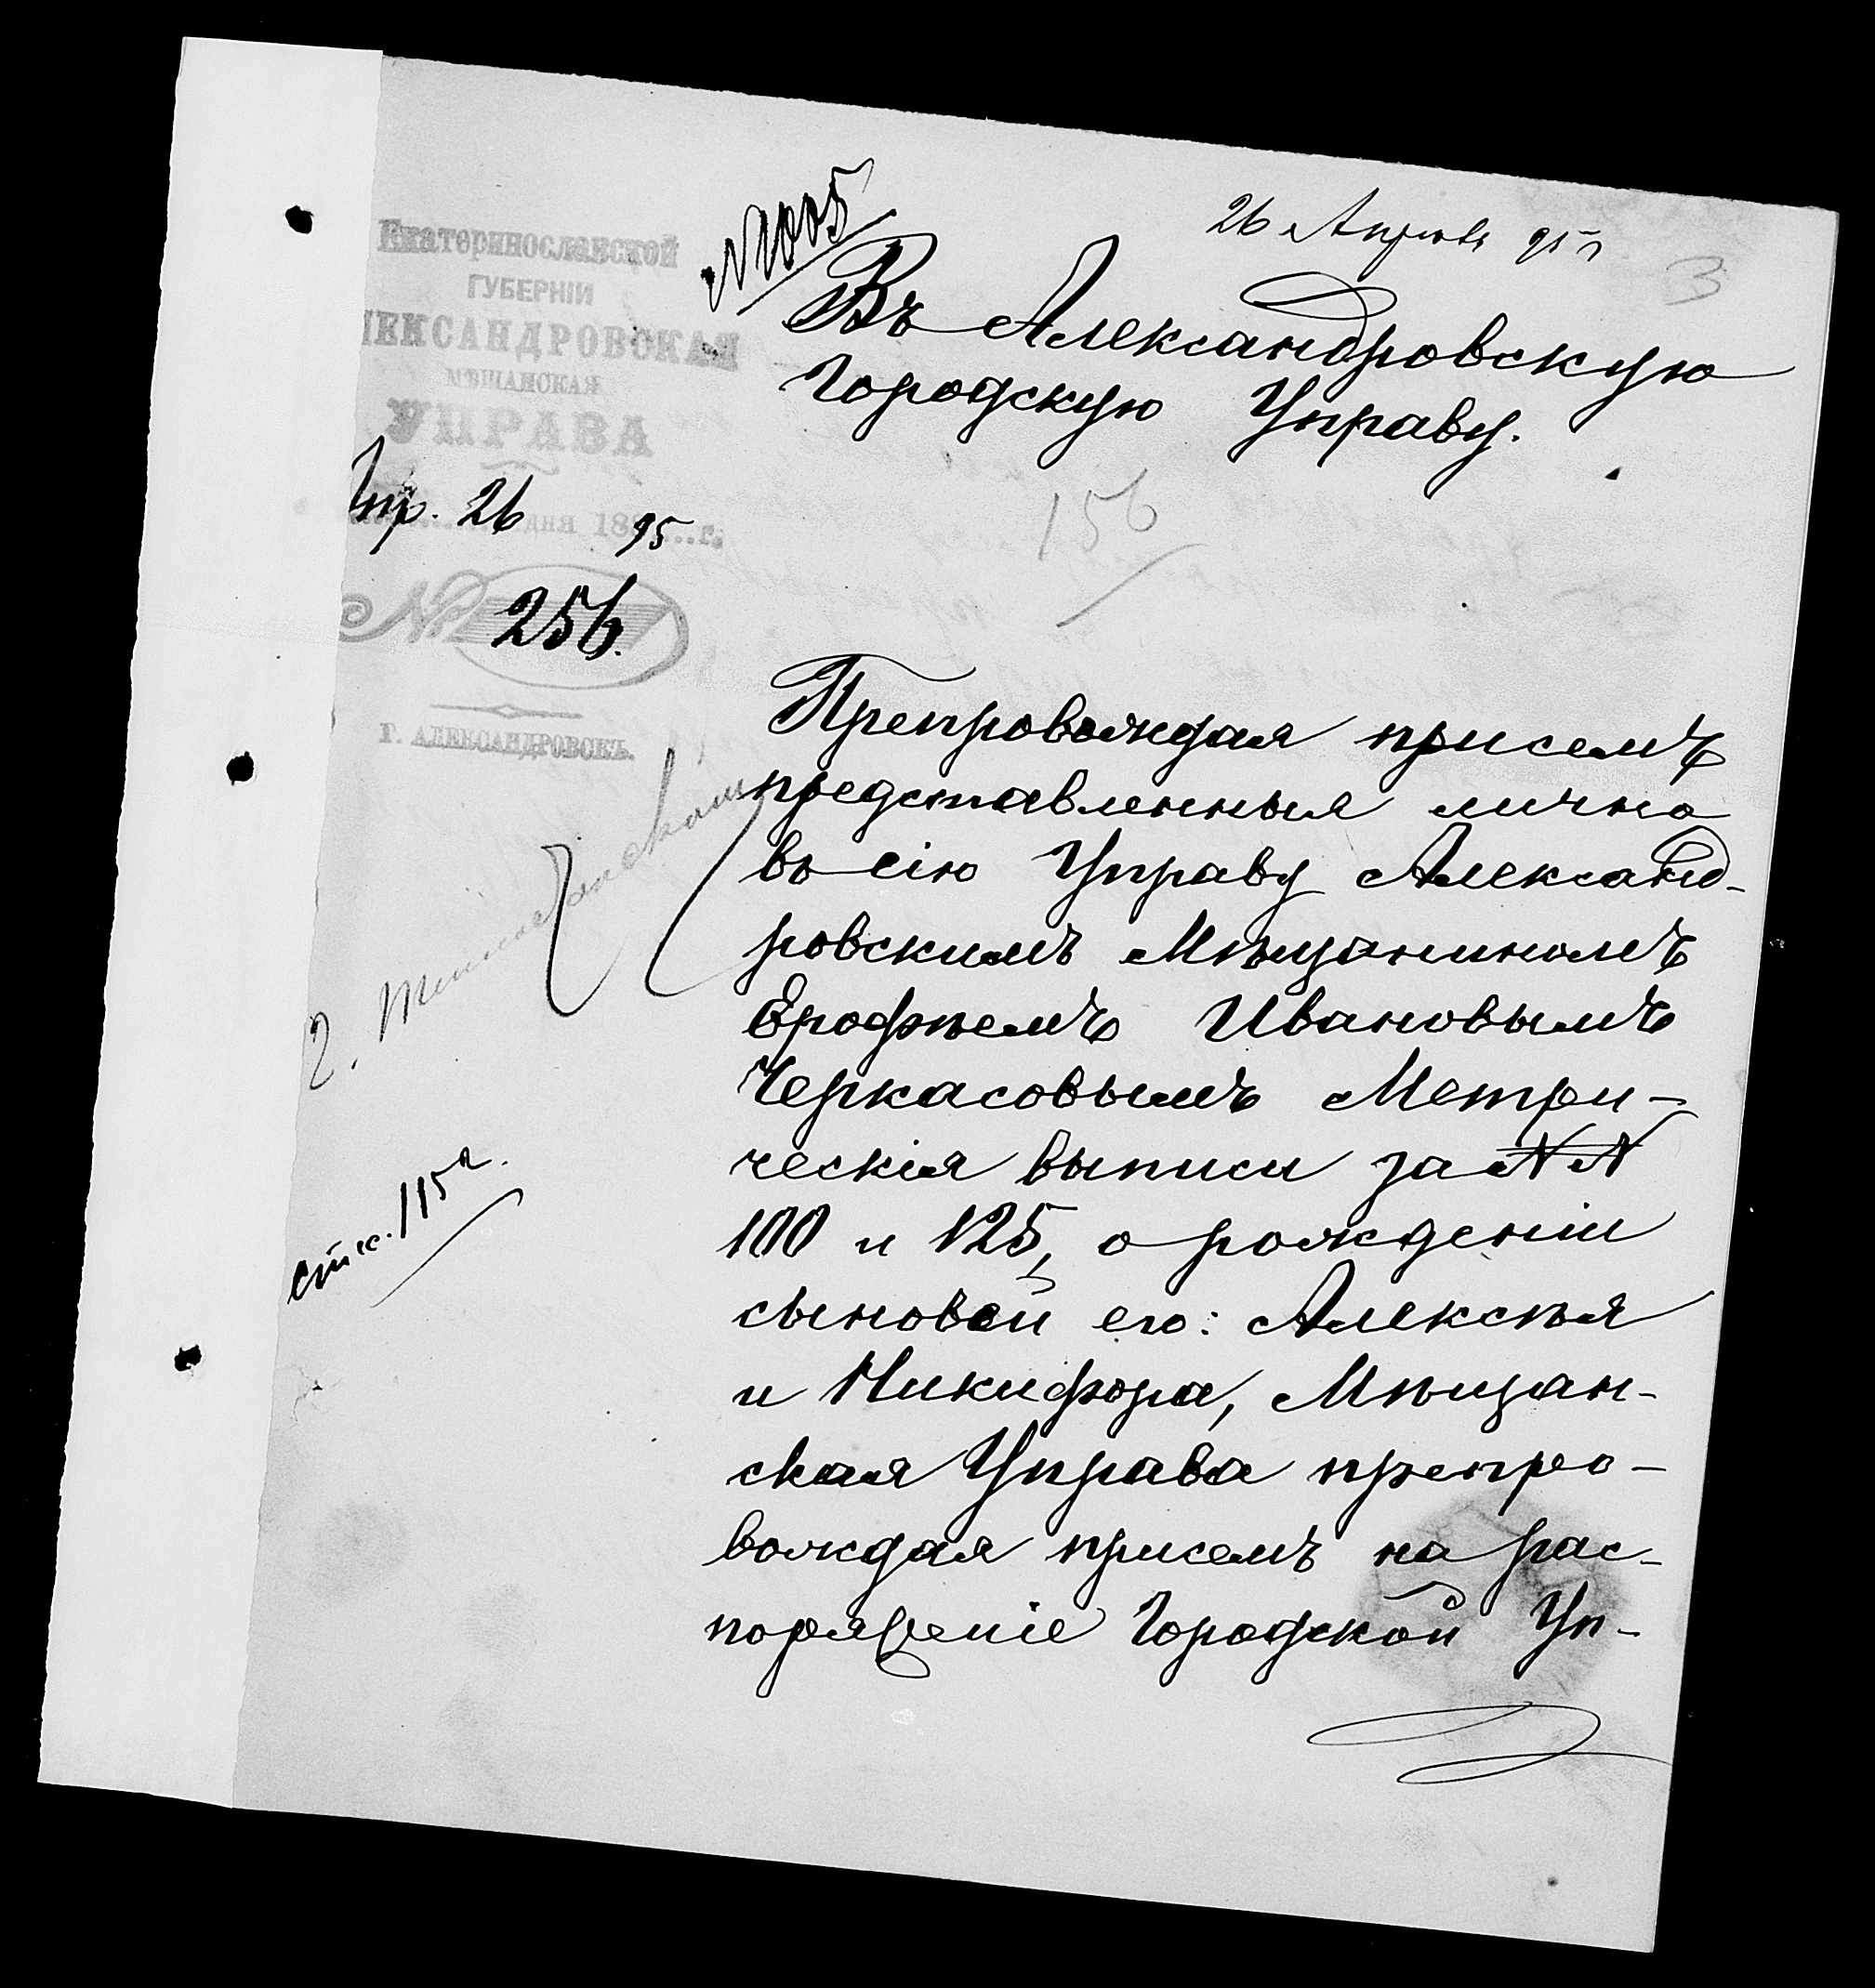 Екатеринославской
ГУБЕРНІИ
ЛЕКСАНДРОВСКАЯ
МѢЩАНСКАЯ
УПРАВА
Апр. 26 дня 1895 г.
№ 256.
Г. АЛЕКСАНДРОВСКЪ.
№1005
26 Апрѣля 95 г
3
Въ Александровскую
Городскую Управу.
156
Препровождая присемъ
представленныя лично
въ сію Управу Александ-
ровскимъ Мѣщаниномъ
Ерофѣемъ Ивановымъ
Черкасовымъ Метри-
ческія выписи за №№
100 и 125, о рожденіи
сыновей его: Алексѣя
и Никифора, Мѣщан-
ская Управа препро-
вождая присемъ на рас-
поряженіе Городской Уп-